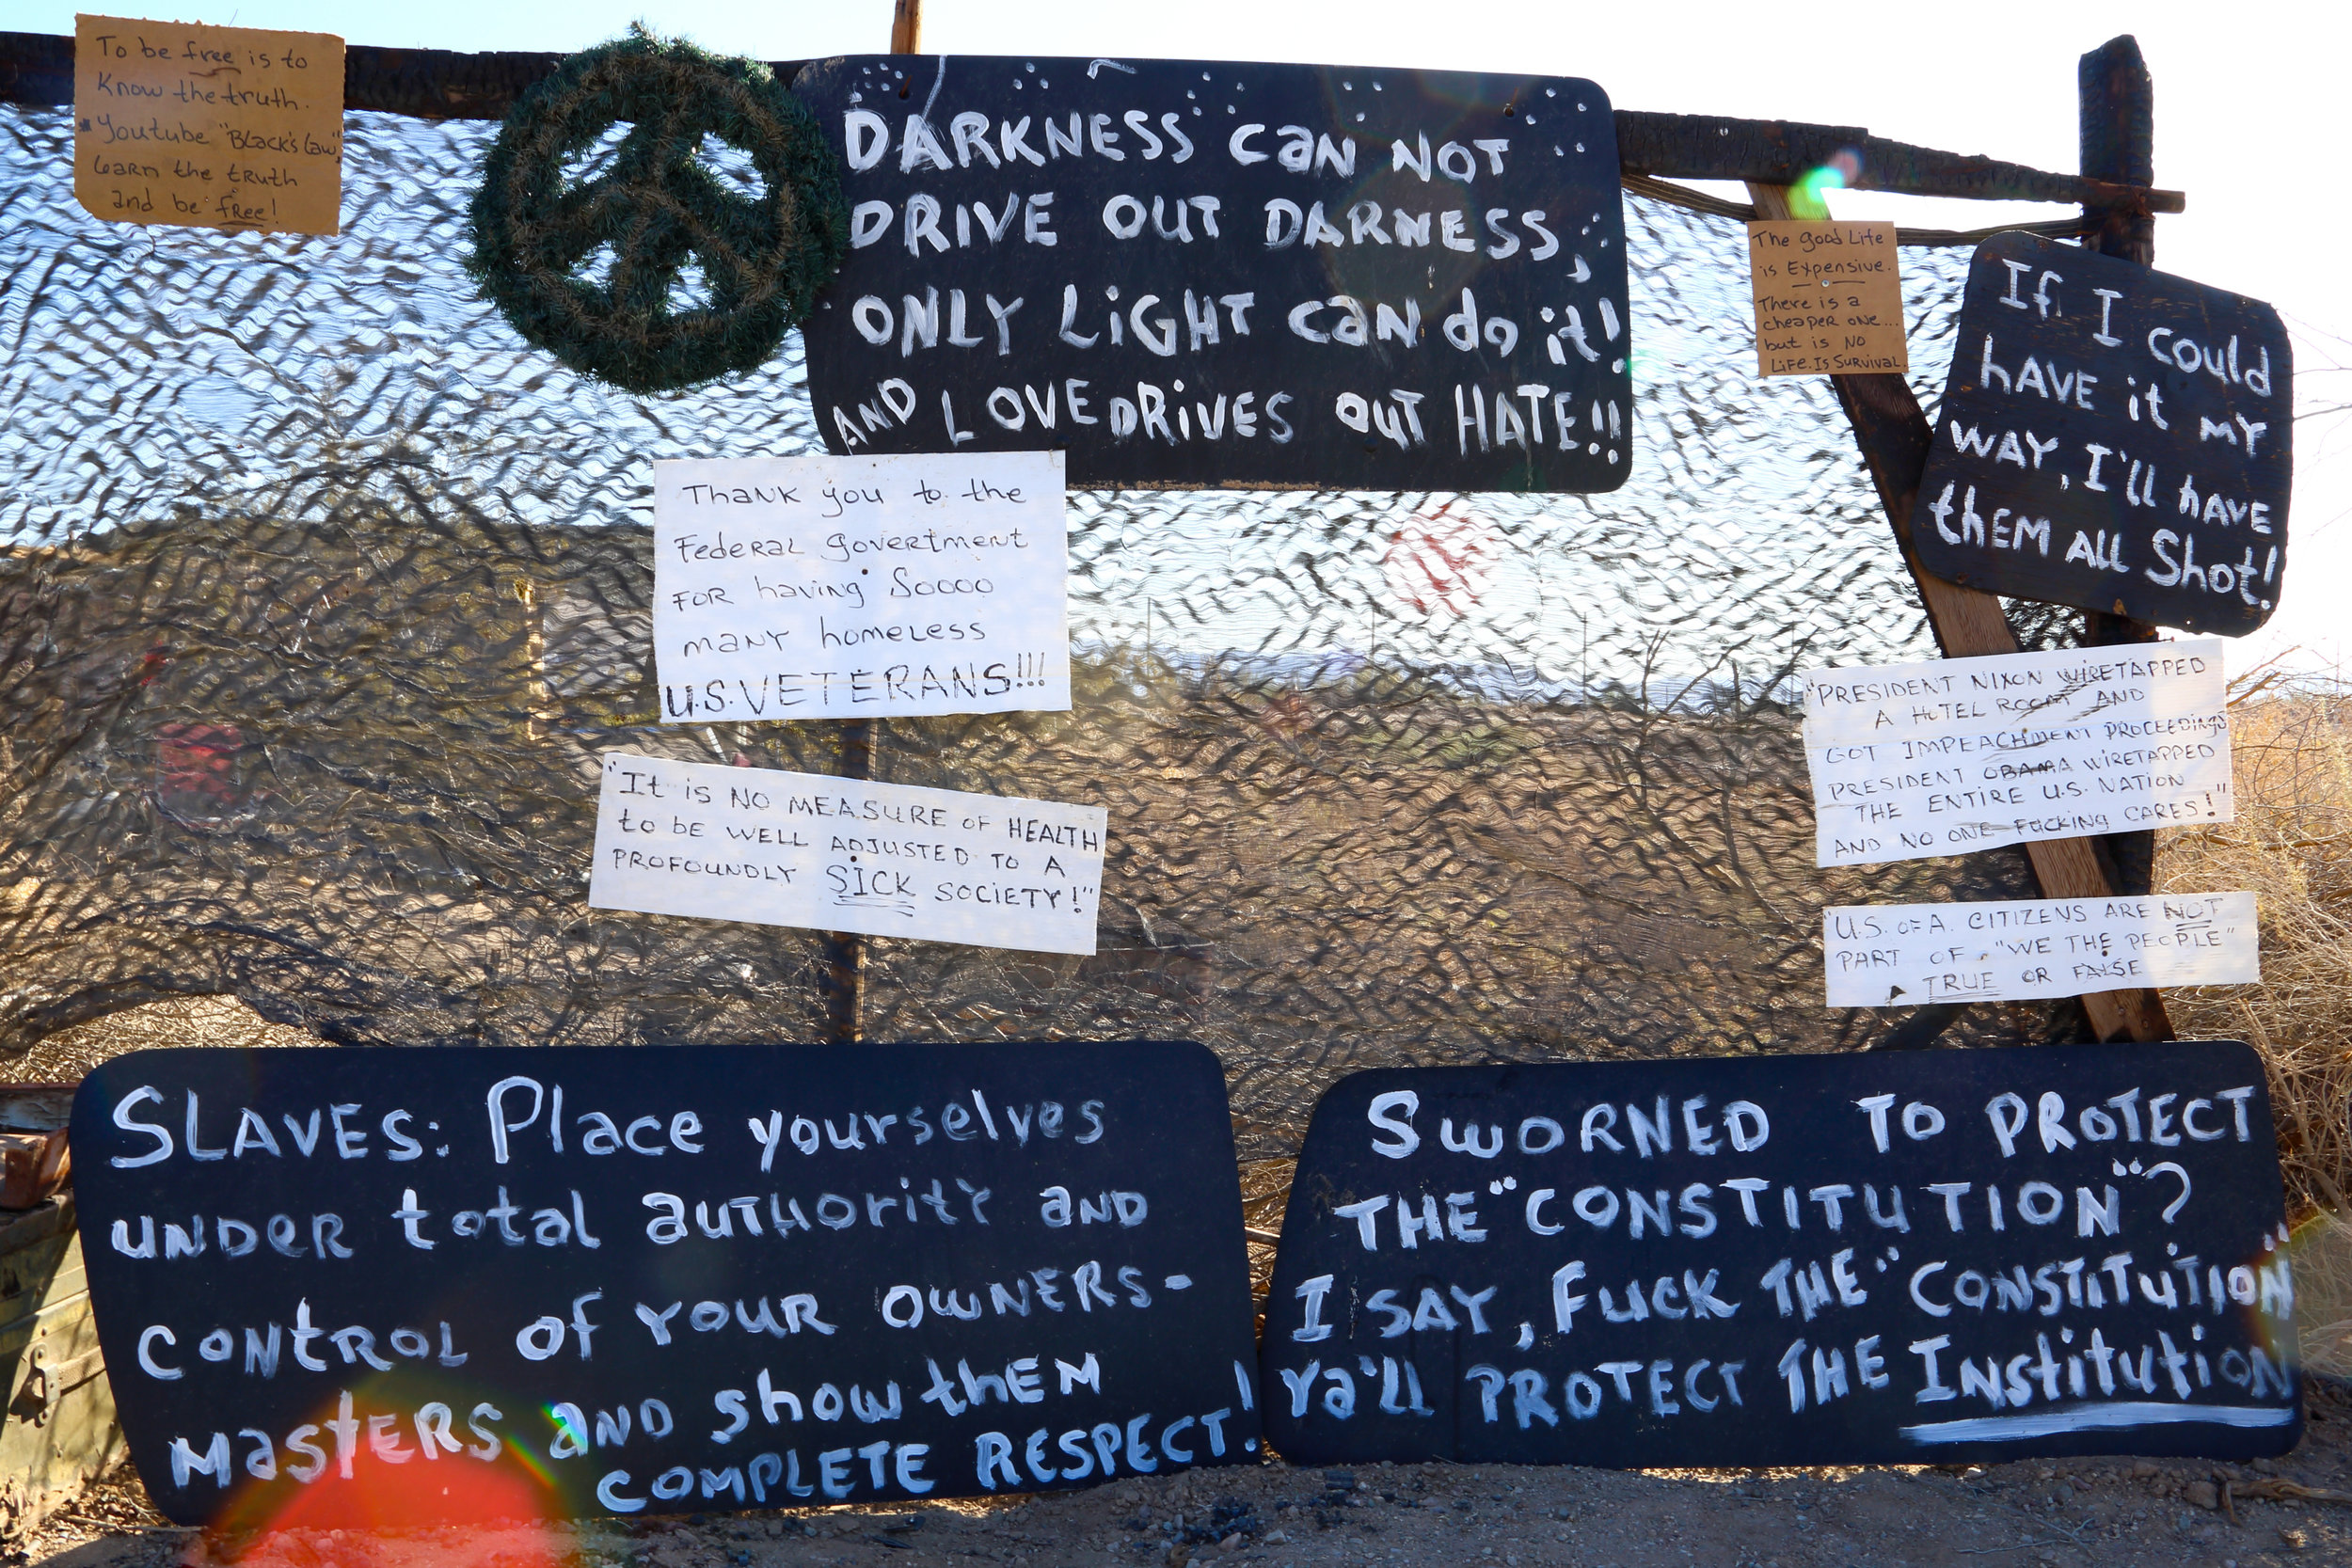 To be free is to
Know the truth.
Youtube "Black's Law",
Learn the truth
and be free!
DARKNESS CAN NOT
DRIVE OUT DARNESS,
ONLY LIGHT CAN do it!
AND LOVE DRIVES OUT HATE!!
The good Life
is Expensive.
There is a
cheaper one...
but is NO
Life. Is Survival.
If I could
HAVE it MY
WAY, I'll HAVE
tHEM All Shot!
Thank you to the
Federal govertment
FOR having Soooo
many homeless
U.S. VETERANS!!!
"It is NO MEASURE OF HEALTH
to BE WELL ADJUSTED TO A
PROFOUNDLY SICK SOCIETY!"
"PRESIDENT NIXON WIRETAPPED
A HOTEL ROOM AND
GOT IMPEACHMENT PROCEEDINGS
PRESIDENT OBAMA WIRETAPPED
THE ENTIRE U.S. NATION
AND NO ONE FUCKING CARES!"
"U.S. OF A. CITIZENS ARE NOT
PART OF "WE THE PEOPLE"
TRUE OR FALSE
SLAVES: Place yourselves
UNDER total AUTHORITY AND
CONTROL of YOUR OWNERS-
MASTERS AND show them
COMPLETE RESPECT!
SWORNED TO PROTECT
THE "CONSTITUTION"?
I SAY, FUCK THE "CONSTITUTION"
Ya'll PROTECT THE Institution